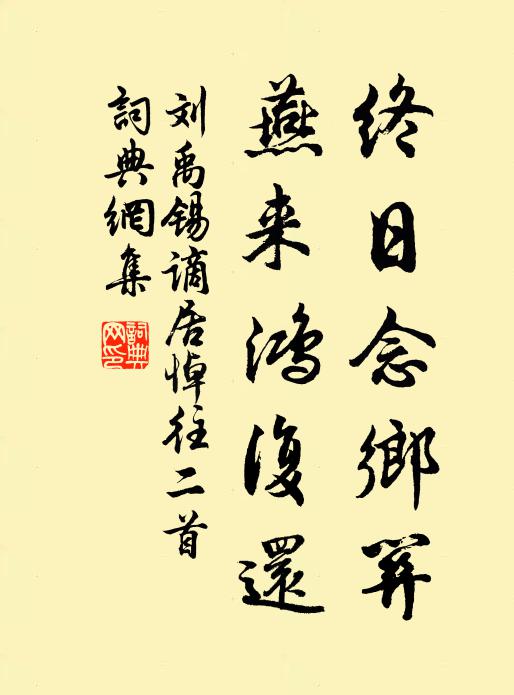 终日念鄉關
燕来鸿復還
刘禹锡谪居悼往二首
詞典網集
詞典网印